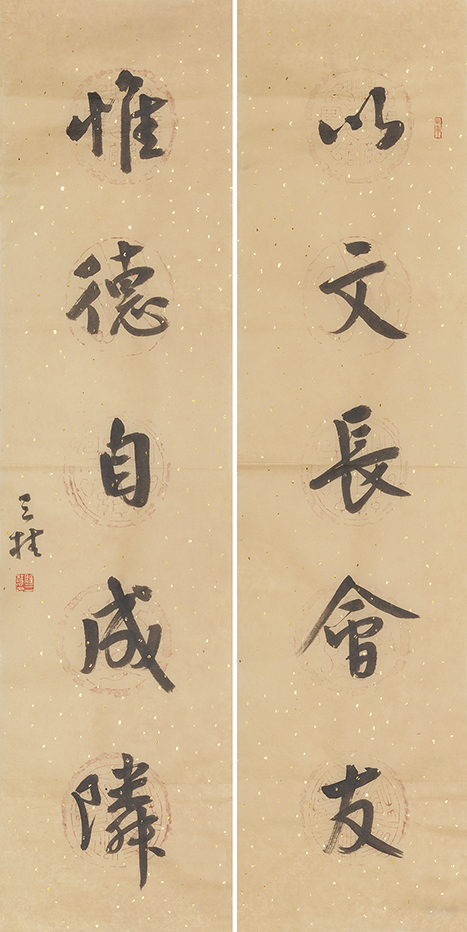 以文長會友
惟德自成隣
三桂